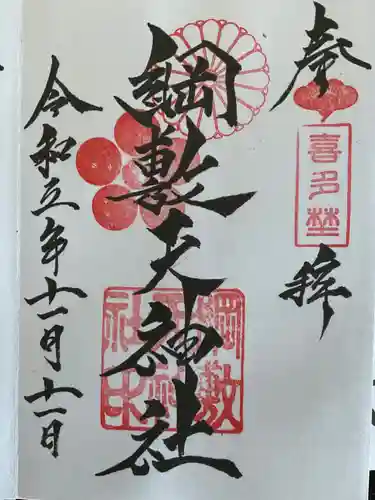 奉拝
喜多埜
綱敷天神社
綱敷
社印
令和五年十一月十一日